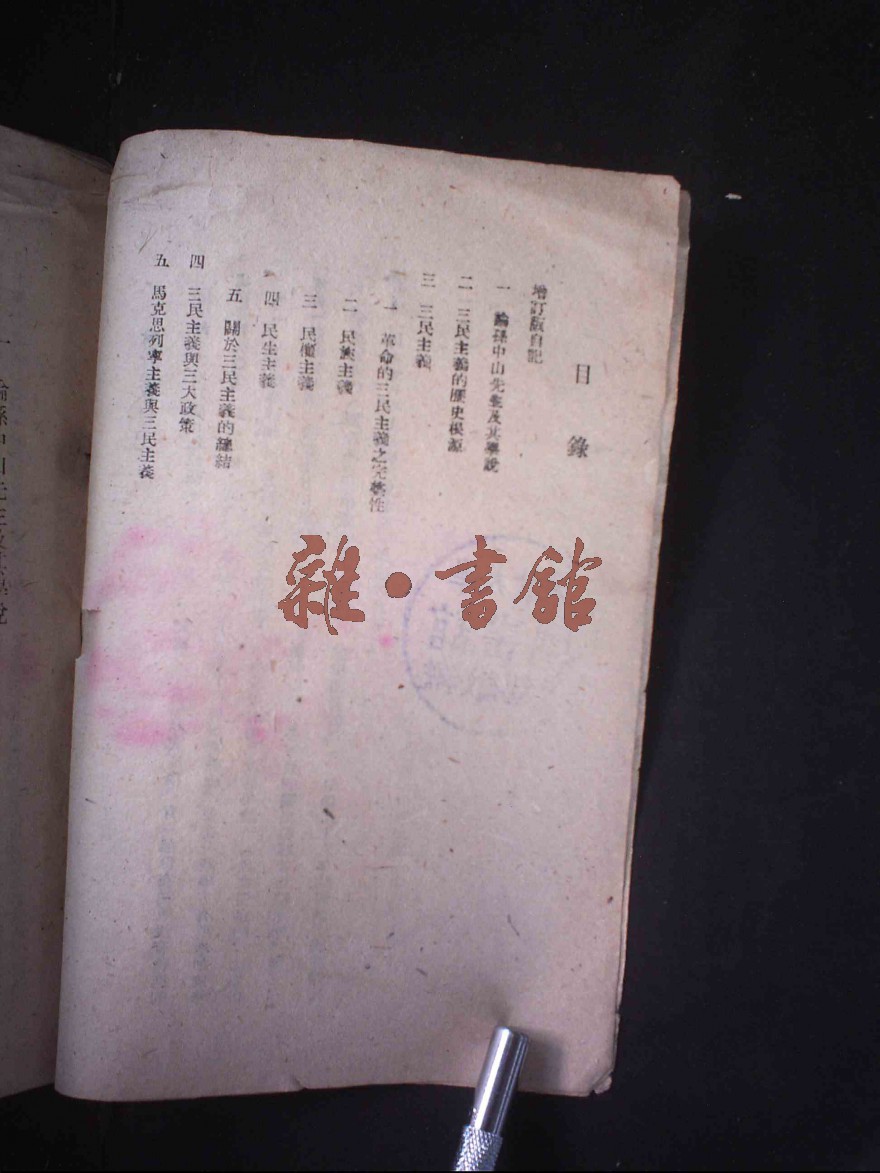 目錄
增訂版自記
一 論孫中山先生及其學說
二 三民主義的歷史根源
三 三民主義
一 革命的三民主義之完整性
二 民族主義
三 民權主義
四 民生主義
五 關於三民主義的總結
四 三民主義與三大政策
五 馬克思列寧主義與三民主義
一 論孫中山先生及其學說
雜·書館